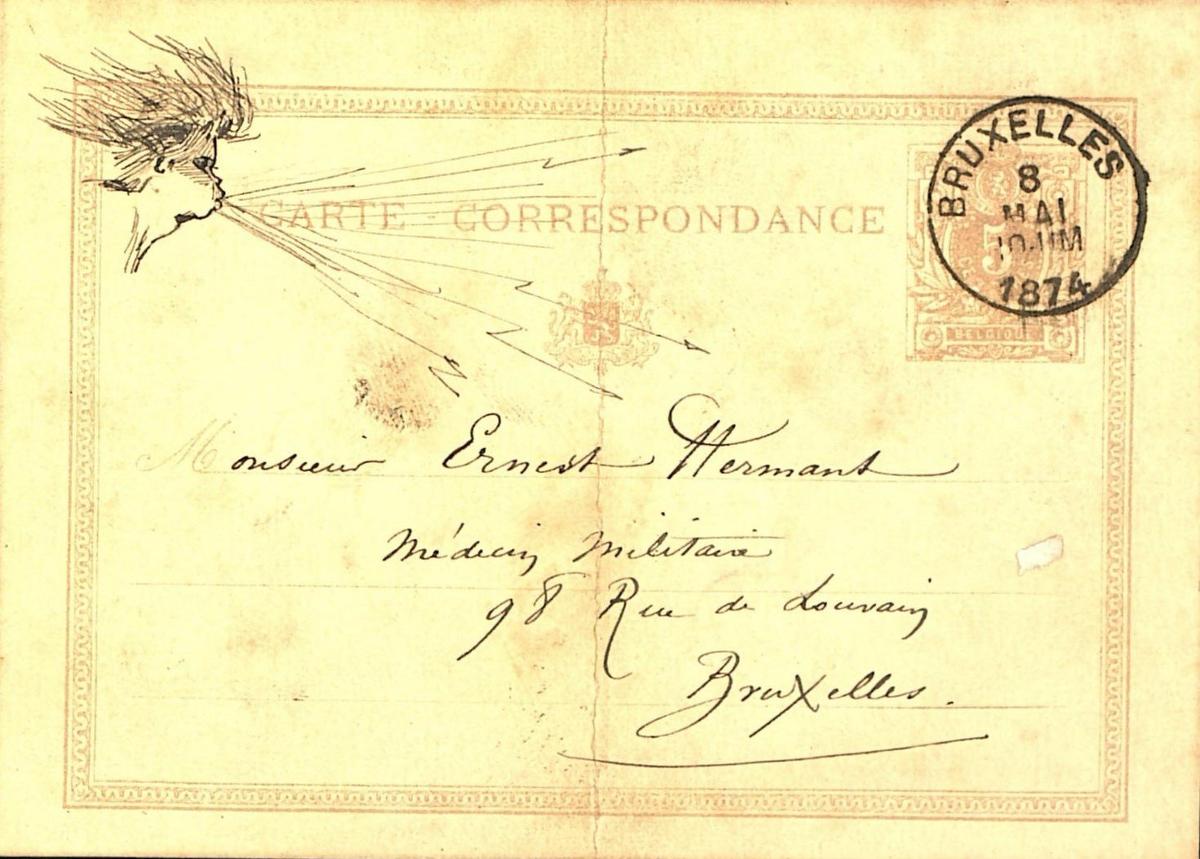 CARTE - CORRESPONDANCE
BRUXELLES
8
MAI
1874
5
BELGIQUE
Monsieur Ernest Hermant
Médecin Militaire
98 Rue de Louvain
Bruxelles.